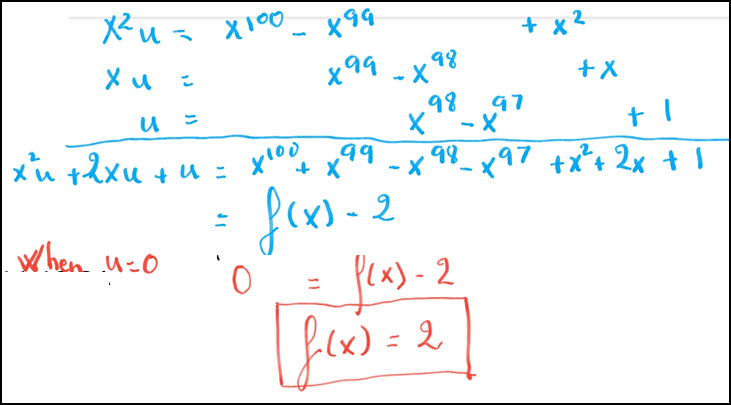 x²u = x¹⁰⁰ - x⁹⁹ + x²
xu = x⁹⁹ - x⁹⁸ + x
u = x⁹⁸ - x⁹⁷ + 1
x²u + 2xu + u = x¹⁰⁰ + x⁹⁹ - x⁹⁸ - x⁹⁷ + x² + 2x + 1
= f(x) - 2
When u=0
0 = f(x) - 2
f(x) = 2